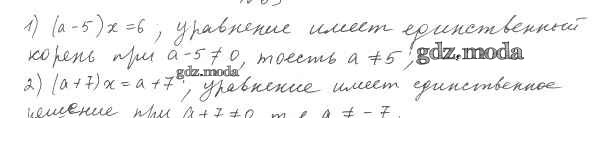 1) (a-5)x=6; уравнение имеет единственный
корень при a-5≠0, тоесть a≠5; gdz.moda
gdz.moda
2) (a+7)x=a+7; уравнение имеет единственное
решение при a+7≠0, т.е. a≠-7.